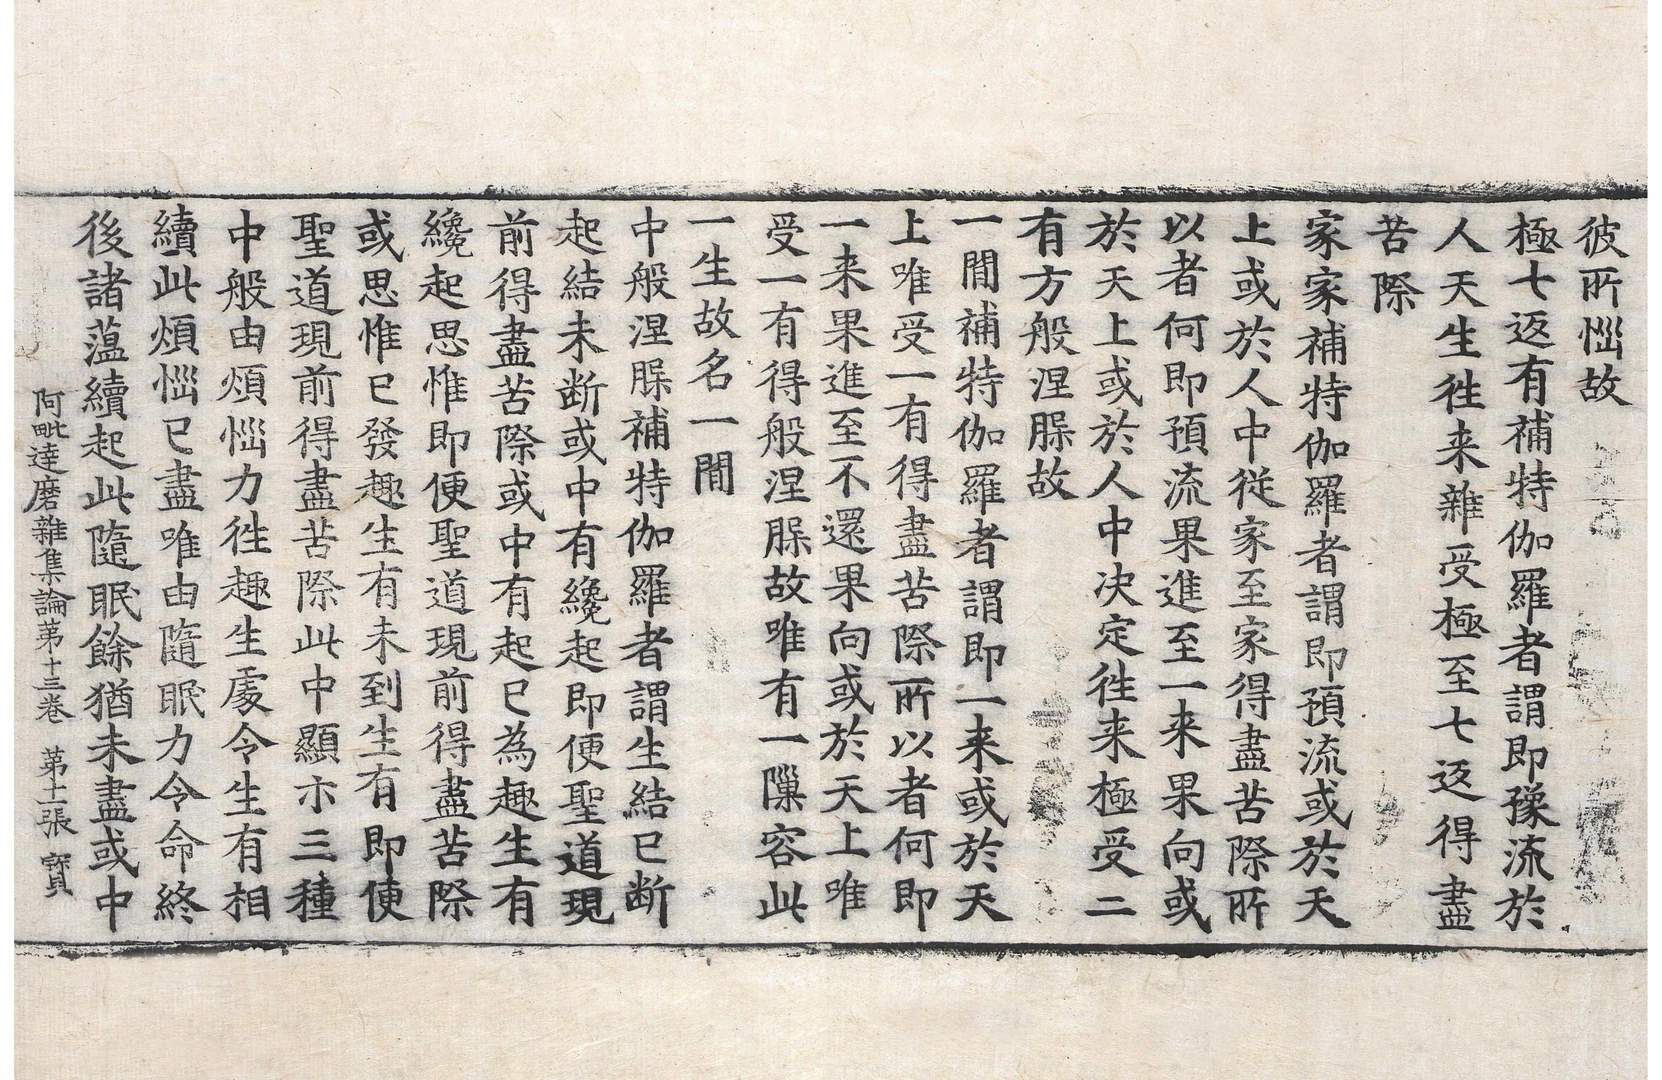 彼所惱故
極七返有補特伽羅者謂即豫流於
人天生往来雜受極至七返得盡
苦際
家家補特伽羅者謂即預流或於天
上或於人中從家至家得盡苦際所
以者何即預流果進至一来果向或
於天上或於人中决定往来極受二
有方般涅槃故
一間補特伽羅者謂即一来或於天
上唯受一有得盡苦際所以者何即
一来果進至不還果向或於天上唯
受一有得般涅槃故唯有一隟容此
一生故名一間
中般涅槃補特伽羅者謂生結已断
起結未断或中有纔起即便聖道現
前得盡苦際或中有起已為趣生有
纔起思惟即便聖道現前得盡苦際
或思惟已發趣生有未到生有即便
聖道現前得盡苦際此中顯示三種
中般由煩惱力往趣生處令生有相
續此煩惱已盡唯由隨眠力令命終
後諸蕰續起此隨眠餘猶未盡或中
阿毗達磨雜集論苐十三卷　苐十二張　寶